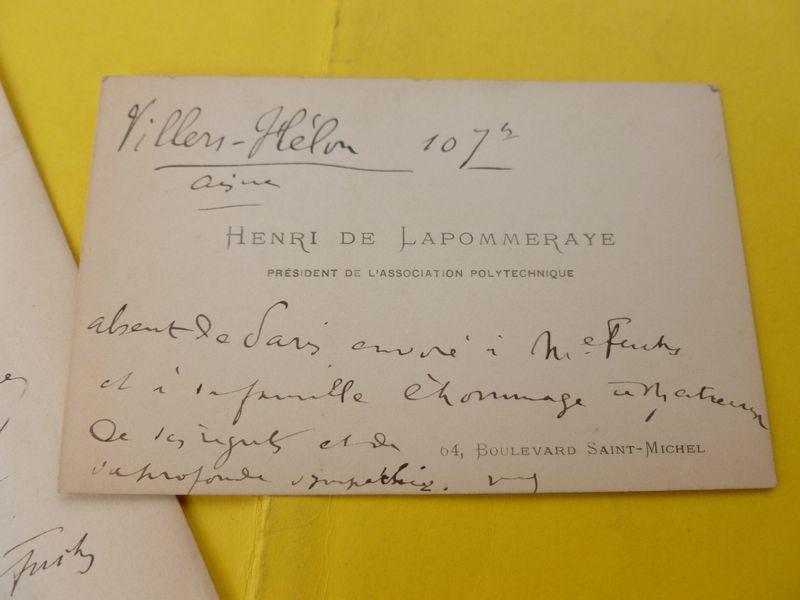 Villers-Hélon 10 7bre
Aisne
HENRI DE LAPOMMERAYE
PRÉSIDENT DE L'ASSOCIATION POLYTECHNIQUE
absent de Paris envoie à Me Fuchs
et à sa famille l'hommage
de ses regrets et de
64, BOULEVARD SAINT-MICHEL
sa profonde sympathie.
Fuchs